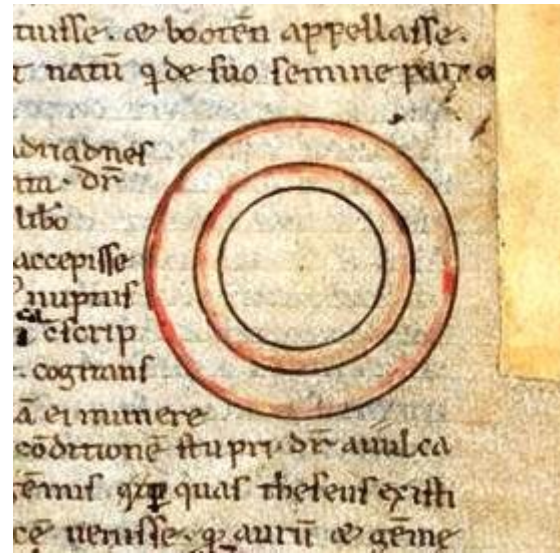 tuisse. & booten̄ appellasse.
t natū q̇ de suo semine
adriadnes
dr̄
libo
accepisse
nuptiis
escrip
cogtans
ā ei munere
cōditionē stupri. dr̄ auulca
gēmis quas theseus existi
cē uenisse. aurū & gēme